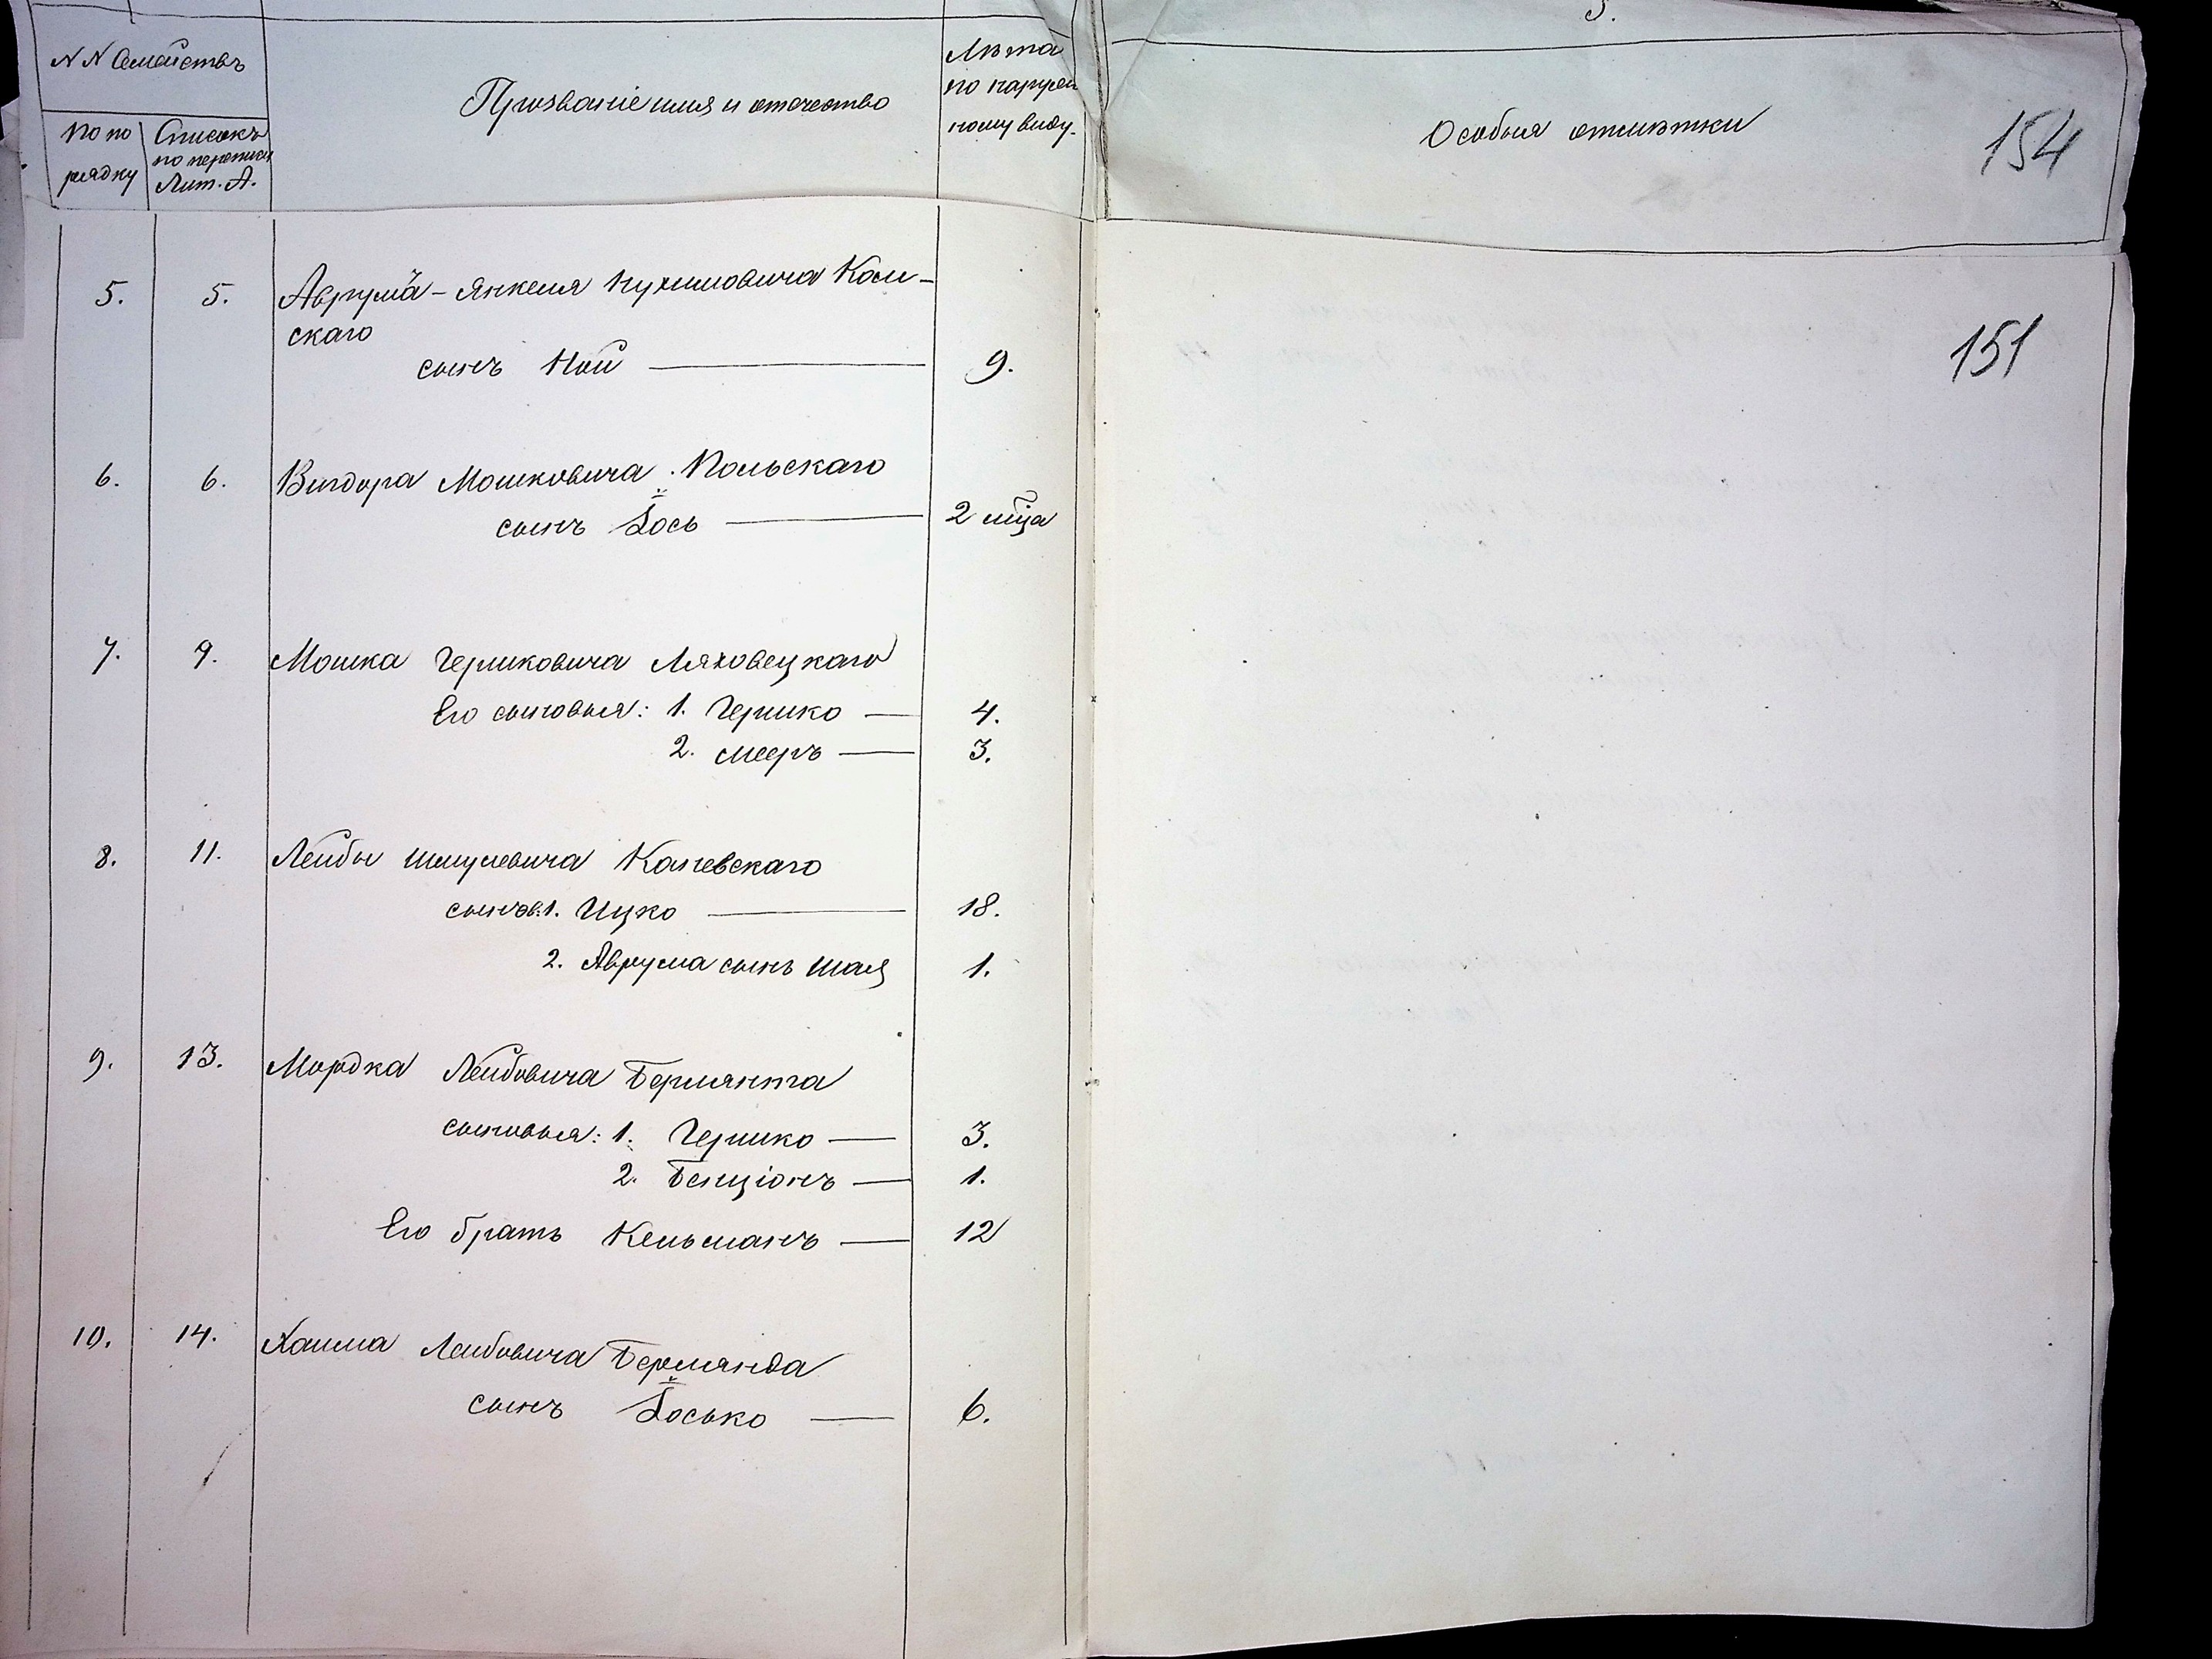 3.
N N Семействъ
По порядку
Списокъ по переписи Лит. А.
Прозваніе имя и отечество
Лѣта по наружному виду.
Особыя отмѣтки
154
151
5. 5. Аврума-Янкеля Нухимовича Кам-
скаго
сынъ Ной — 9.
6. 6. Вигдора Мошковича Польскаго
сынъ Іось — 2 мца
7. 9. Мошка Гершковича Ляховецкаго
Его сыновья: 1. Гершко — 4.
2. Мееръ — 3.
8. 11. Лейбы Шмулевича Каневскаго
сынов: 1. Ицко — 18.
2. Аврума сынъ Шая 1.
9. 13. Мордка Лейбовича Бермянта
сыновья: 1. Гершко — 3.
2. Бенціонъ — 1.
Его братъ Кельманъ — 12
10. 14. Хаима Лейбовича Бермянда
сынъ Іосько — 6.